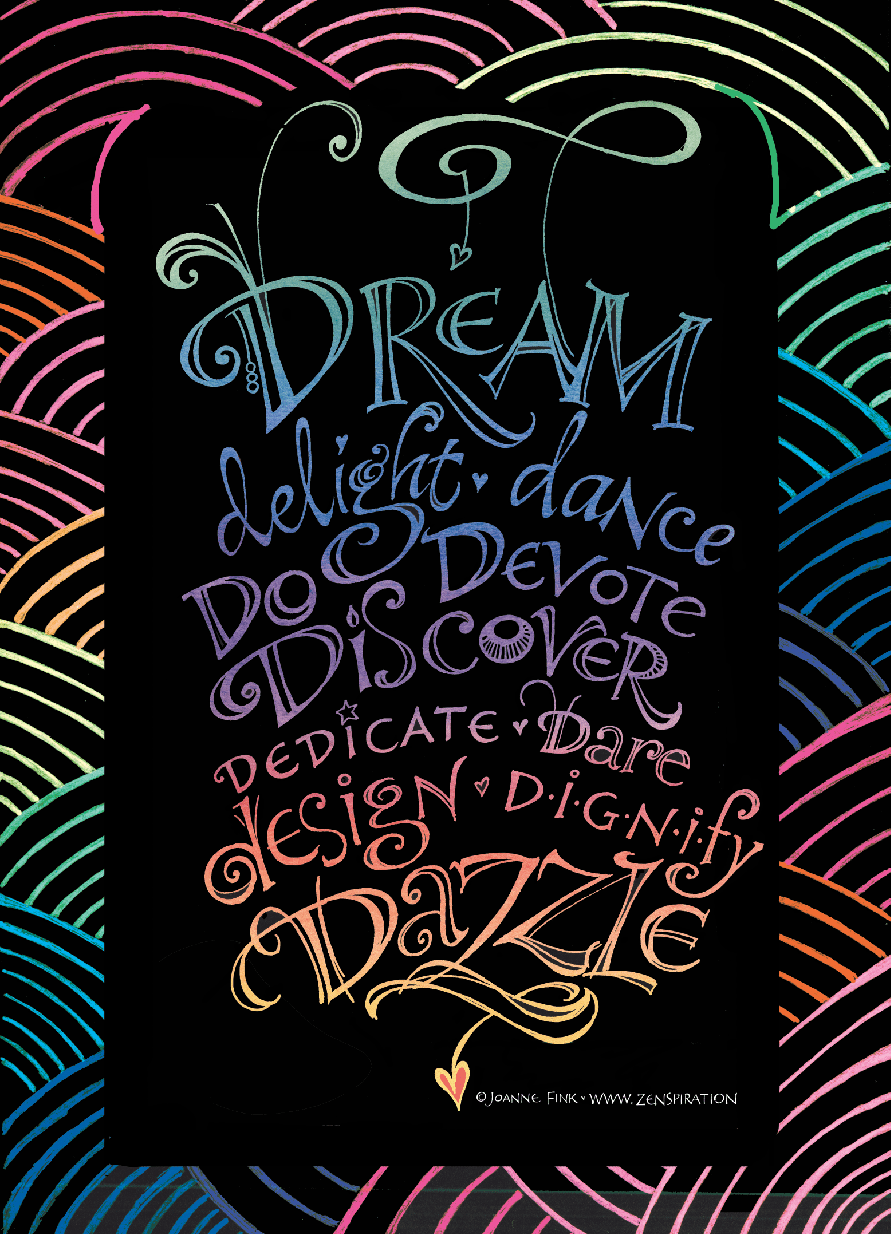 DREAM
delight · dance
Do DEVOTE
DiSCOVER
DEDiCATE · Dare
design · D·i·G·N·i·fy
DaZZLE
©JOANNE FINK · WWW. ZENSPIRATION